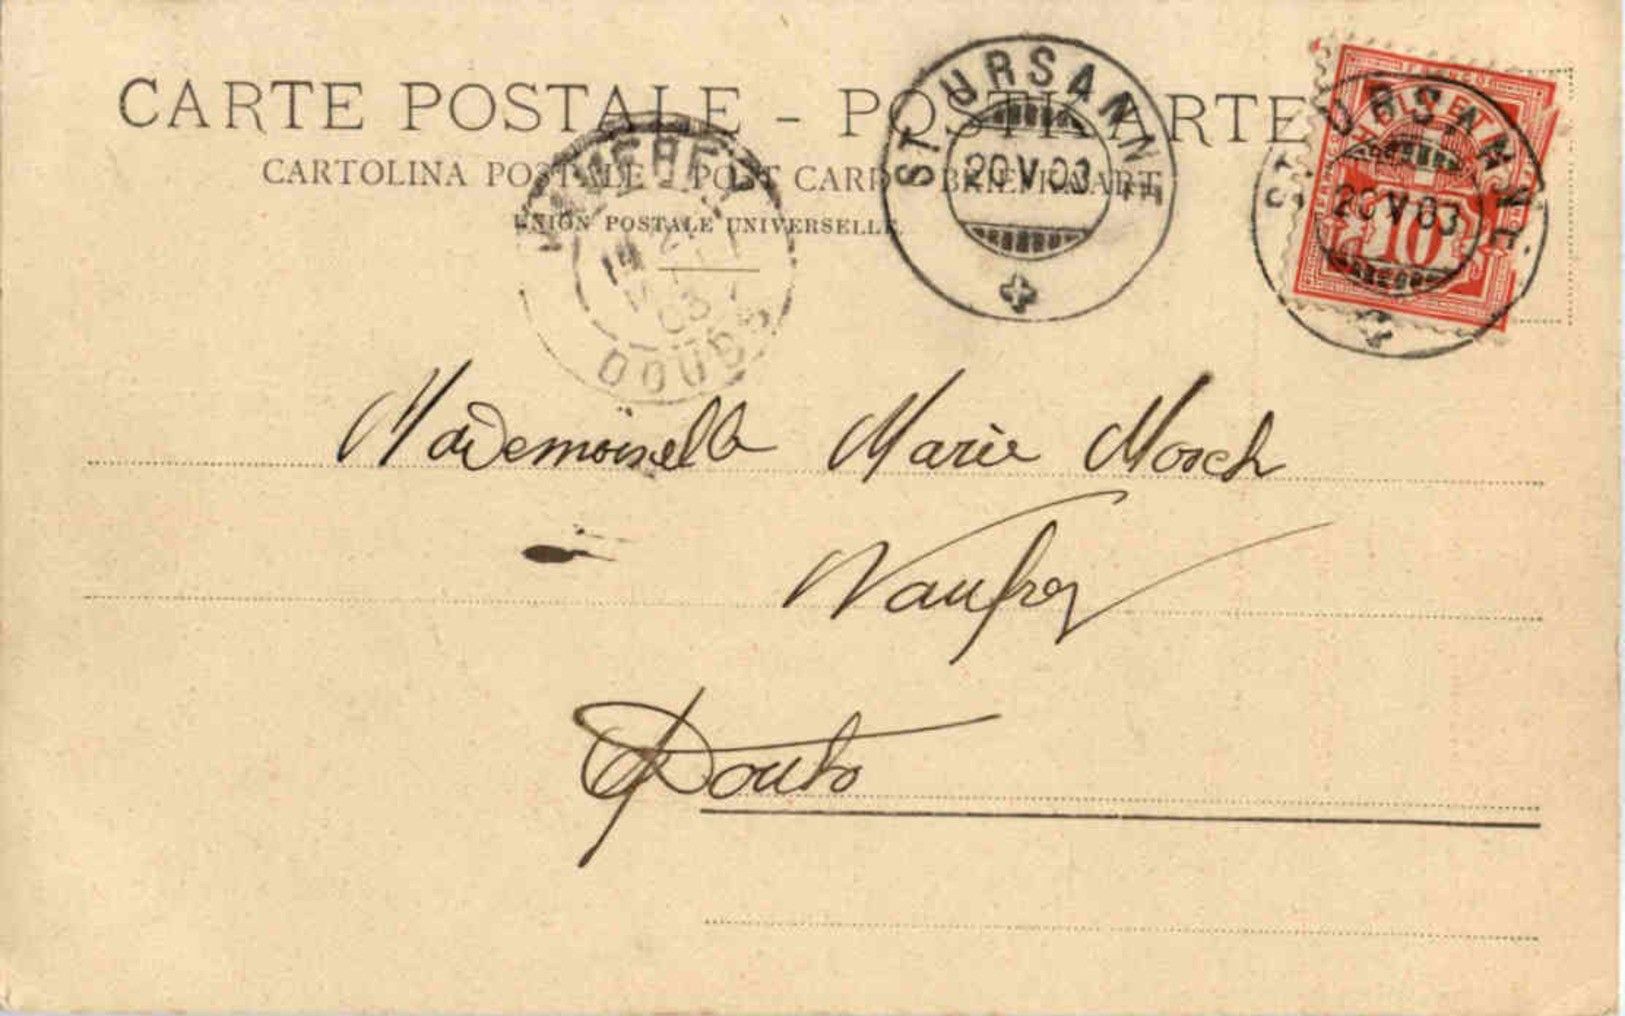 CARTE POSTALE - POSTKARTE
CARTOLINA POSTALE - POST CARD - BRIEFKAART
UNION POSTALE UNIVERSELLE
ST URSANNE
20 V 03
ST URSANNE
20 V 03
10
03
DOUBS
Mademoiselle Marie Mosch
Vaufrey
Doubs